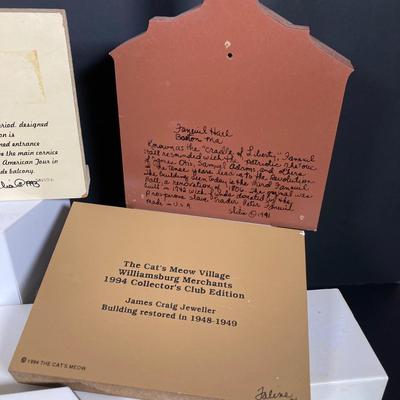 eriod, designed
on is
med entrance
the main cornice
American Tour in
de balcony.
©1993
Faneuil Hall
Boston Ma
Known as the "Cradle of Liberty," Faneuil
Hall resounded with the patriotic rhetoric
of James Otis, Samuel Adams, and others
in the tense years leading to the Revolution.
The building seen today is the third Faneuil
Hall, a renovation of 1806. The original was
built in 1742 with funds donated by the
prosperous slave trader Peter Faneuil
made in U.S.A
©1991
The Cat's Meow Village
Williamsburg Merchants
1994 Collector's Club Edition
James Craig Jeweller
Building restored in 1948-1949
© 1994 THE CAT'S MEOW
Faline